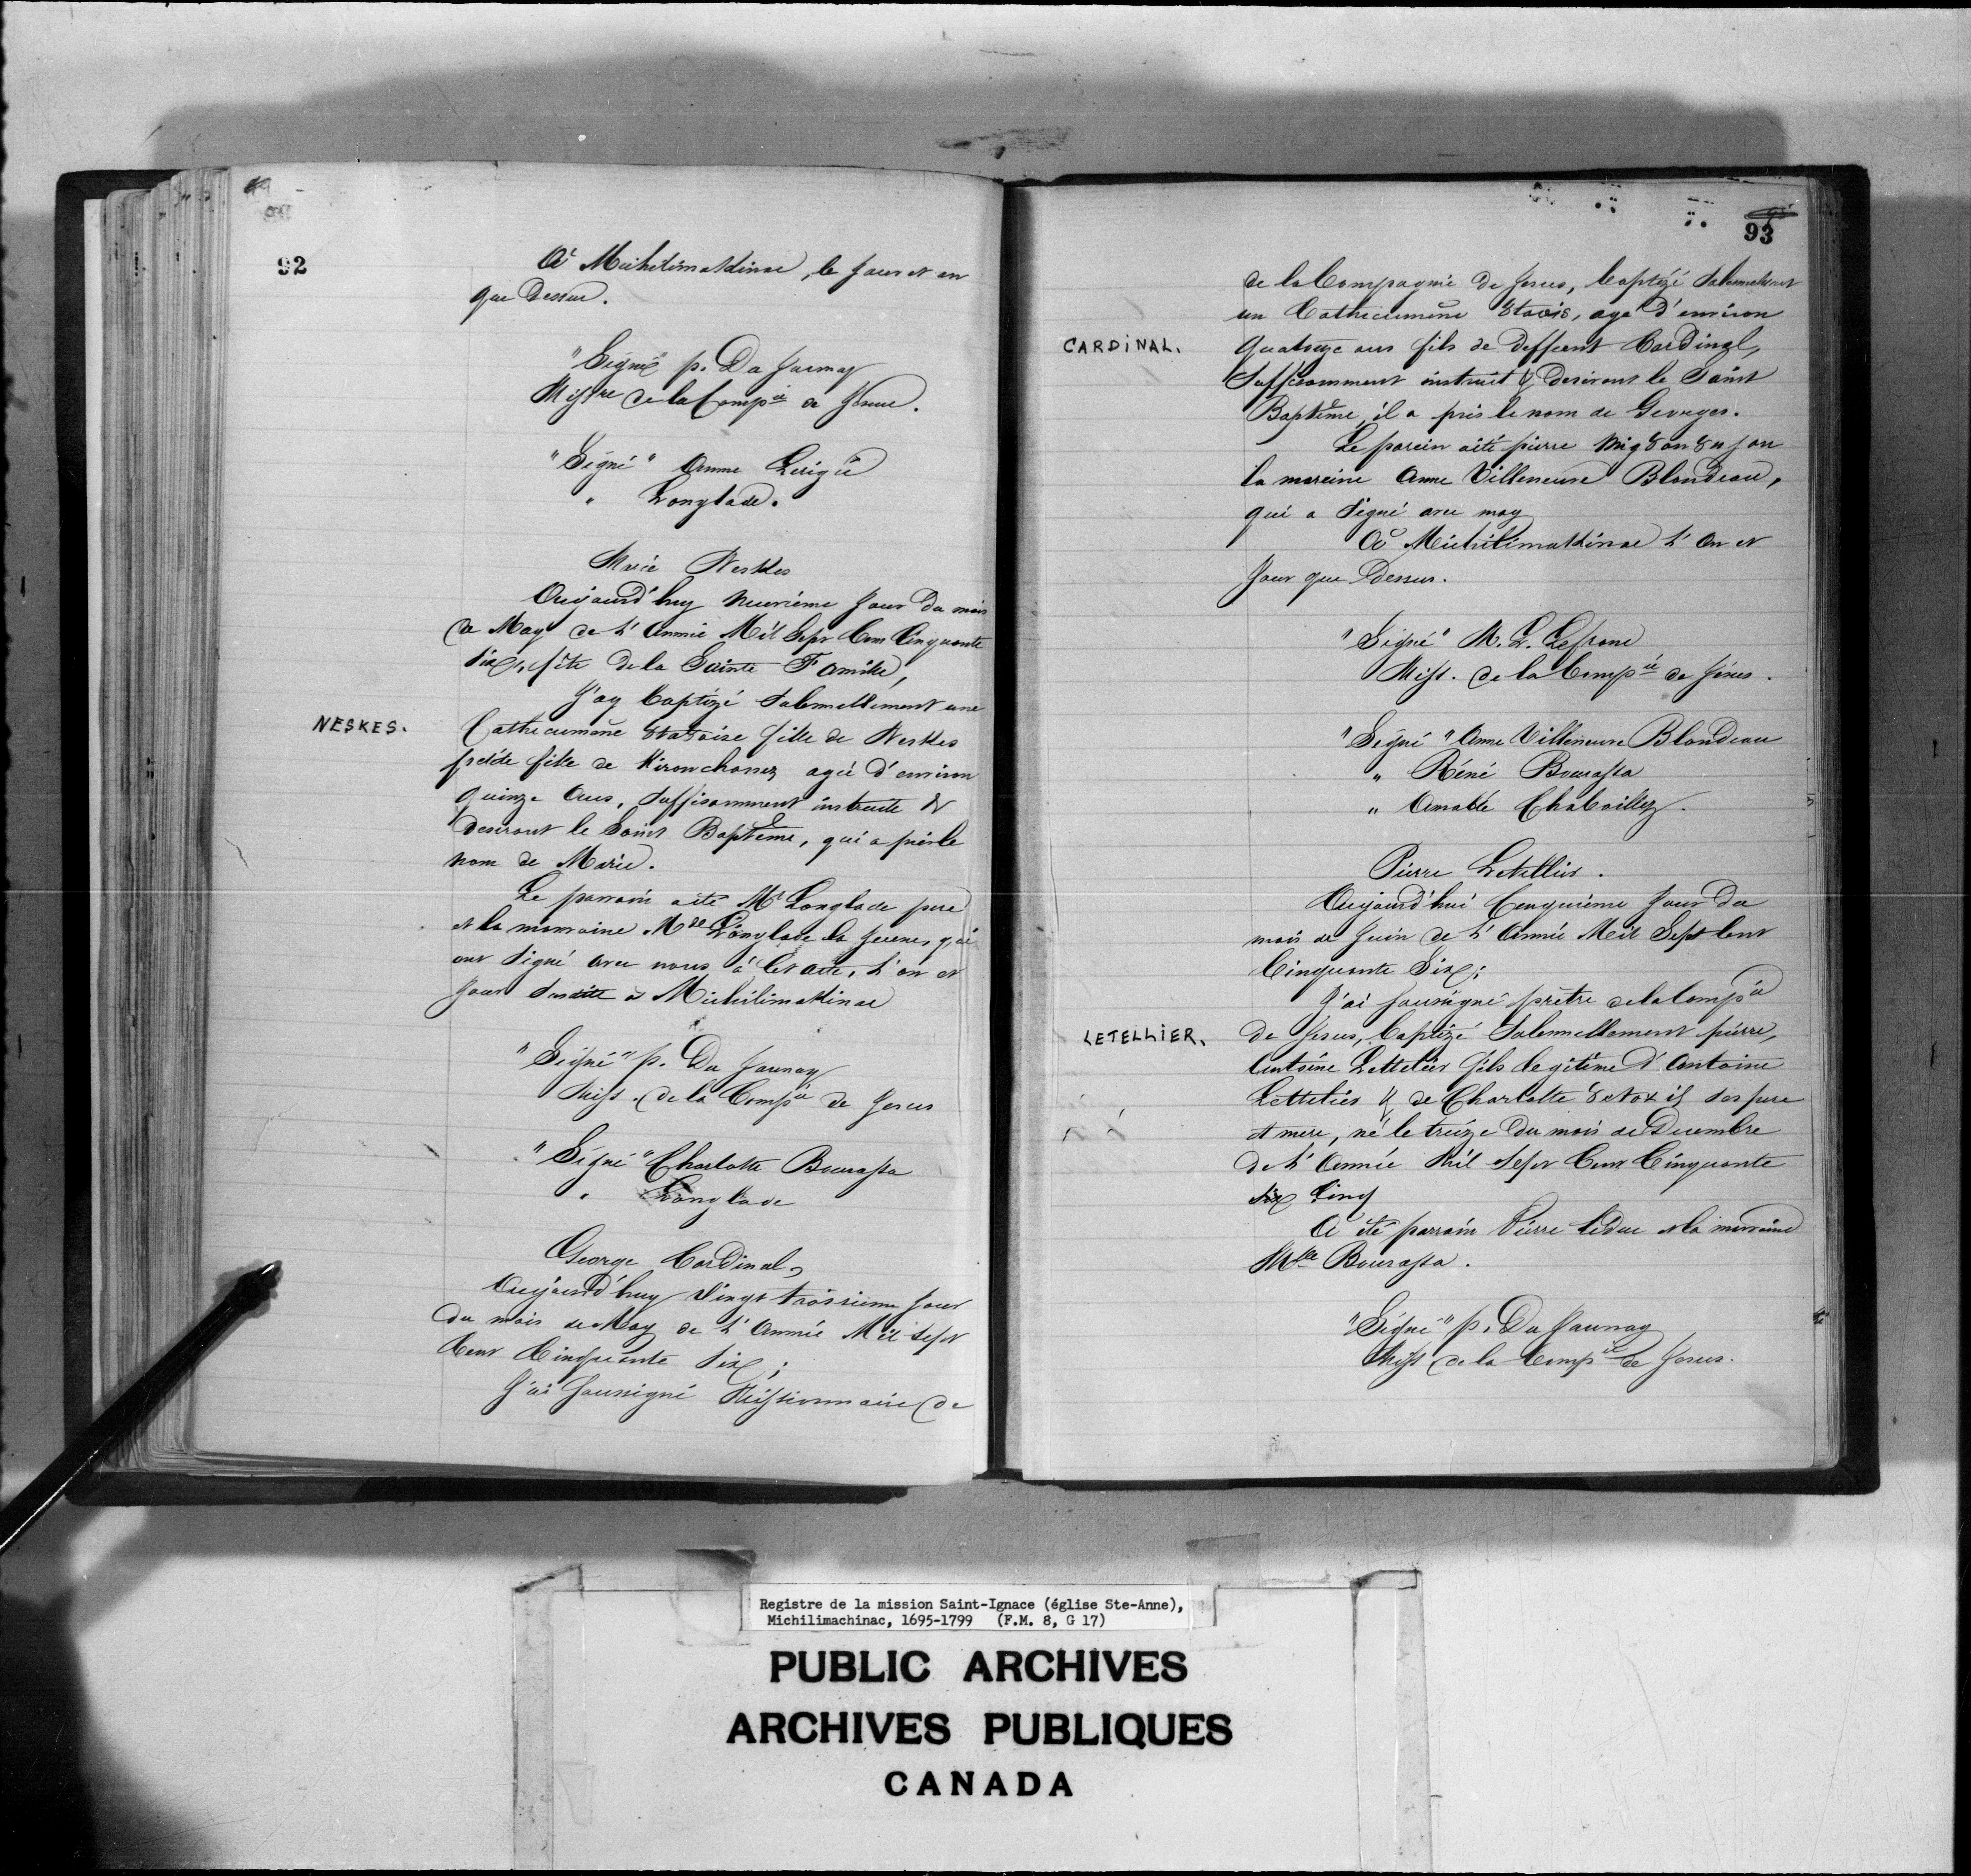 92
A Michilimakinac, le Jour et an
que Dessus.
"Signé" p. Du Jaunay
Missre de la Compie de Jesus.
"Signé" Anne
" Langlade.
Marie Neskes
Aujourd'huy neuvieme Jour du mois
de May de L'Année Mil Sept Cent Cinquante
Six, fête de la Sainte Famille,
J'ay baptizé Solemnellement une
NESKES.
Cathecumene 8ta8oise fille de Neskes
fille de Kironchonez agée d'environ
quinze Ans, Suffisamment instruite &
desirant le Saint Baptême, qui a pris le
nom de Marie.
Le parrain a été Mr Langlade pere
et la marraine Mde Langlade la Jeune, qui
ont Signé avec nous à Cet acte, L'an et
Jour Susdits à Michilimakinac
"Signé" p. Du Jaunay
Miss. de la Compie de Jesus
"Signé" Charlotte Bourassa
" Langlade
George Cardinal,
Aujourd'huy Vingt troisieme Jour
du mois de May de L'Année Mil Sept
Cent Cinquante Six;
J'ai Soussigné Missionnaire de
93
de la Compagnie de Jesus, baptizé Solemnellement
un Cathecumene 8ta8ois, agé d'environ
CARDINAL.
quatorze ans fils de Deffunt Cardinal,
Suffisamment instruit & Desirant le Saint
Baptême, il a pris le nom de Georges.
Le parein a été pierre
la mareine Anne Villeneuve Blondeau,
qui a Signé avec moy
A Michilimakinac L'An et
Jour que Dessus.
"Signé" M. L. Lefranc
Miss. de la Compie de Jésus.
"Signé" Anne Villeneuve Blondeau
" Réné Bourassa
" Amable Chaboillez.
Pierre Letellier.
Aujourd'hui Cinquieme Jour du
mois de Juin de L'Année Mil Sept Cent
Cinquante Six;
J'ai Soussigné prêtre de la Compie
LETELLIER.
de Jesus, baptizé Solemnellement pierre,
Antoine Lettelier fils legitime d'Antoine
Lettelier & de Charlotte ses pere
et mere, né le treize du mois de Decembre
de L'Année Mil Sept Cent Cinquante
six Cinq
A été parrain Pierre Leduc et la marraine
Mlle Bourassa.
"Signé" p. Du Jaunay
Miss de la Compie de Jesus.
Registre de la mission Saint-Ignace (église Ste-Anne),
Michilimachinac, 1695-1799 (F.M. 8, G 17)
PUBLIC ARCHIVES
ARCHIVES PUBLIQUES
CANADA